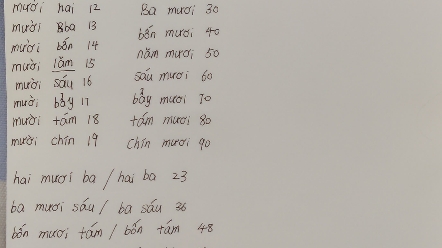 mười hai 12
mười ba 13
mười bốn 14
mười lăm 15
mười sáu 16
mười bảy 17
mười tám 18
mười chín 19
Ba mươi 30
bốn mươi 40
năm mươi 50
sáu mươi 60
bảy mươi 70
tám mươi 80
chín mươi 90
hai mươi ba / hai ba 23
ba mươi sáu / ba sáu 36
bốn mươi tám / bốn tám 48